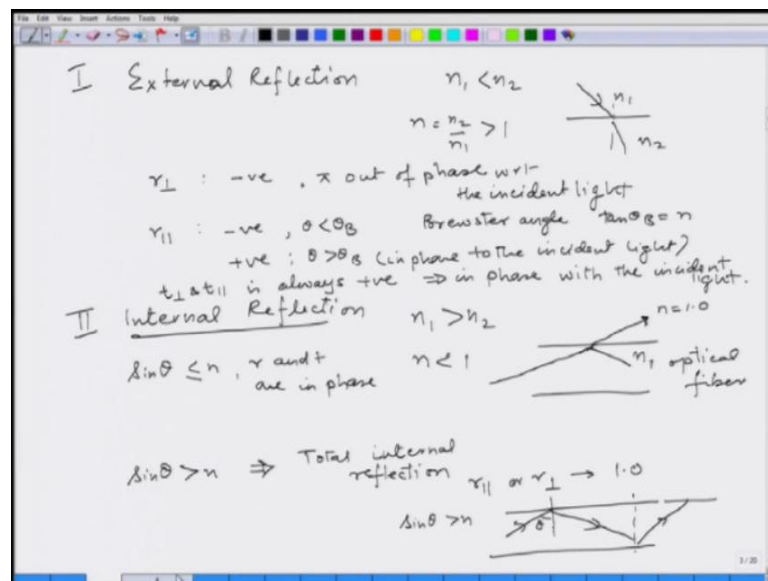 File Edit View Insert Actions Tools Help
I External Reflection n₁ < n₂
n = n₂/n₁ > 1 n₁
n₂
r⊥ : -ve , π out of phase wrt
the incident light
r∥ : -ve , θ<θB Brewster angle tanθB = n
+ve : θ>θB (in phase to the incident light)
t⊥ & t∥ is always +ve ⇒ in phase with the incident
light.
II Internal Reflection n₁ > n₂ n=1.0
sinθ ≤ n, r and t n < 1 n₁ optical
are in phase fiber
sinθ > n ⇒ Total internal
reflection r∥ or r⊥ → 1.0
sinθ > n θ
3/20